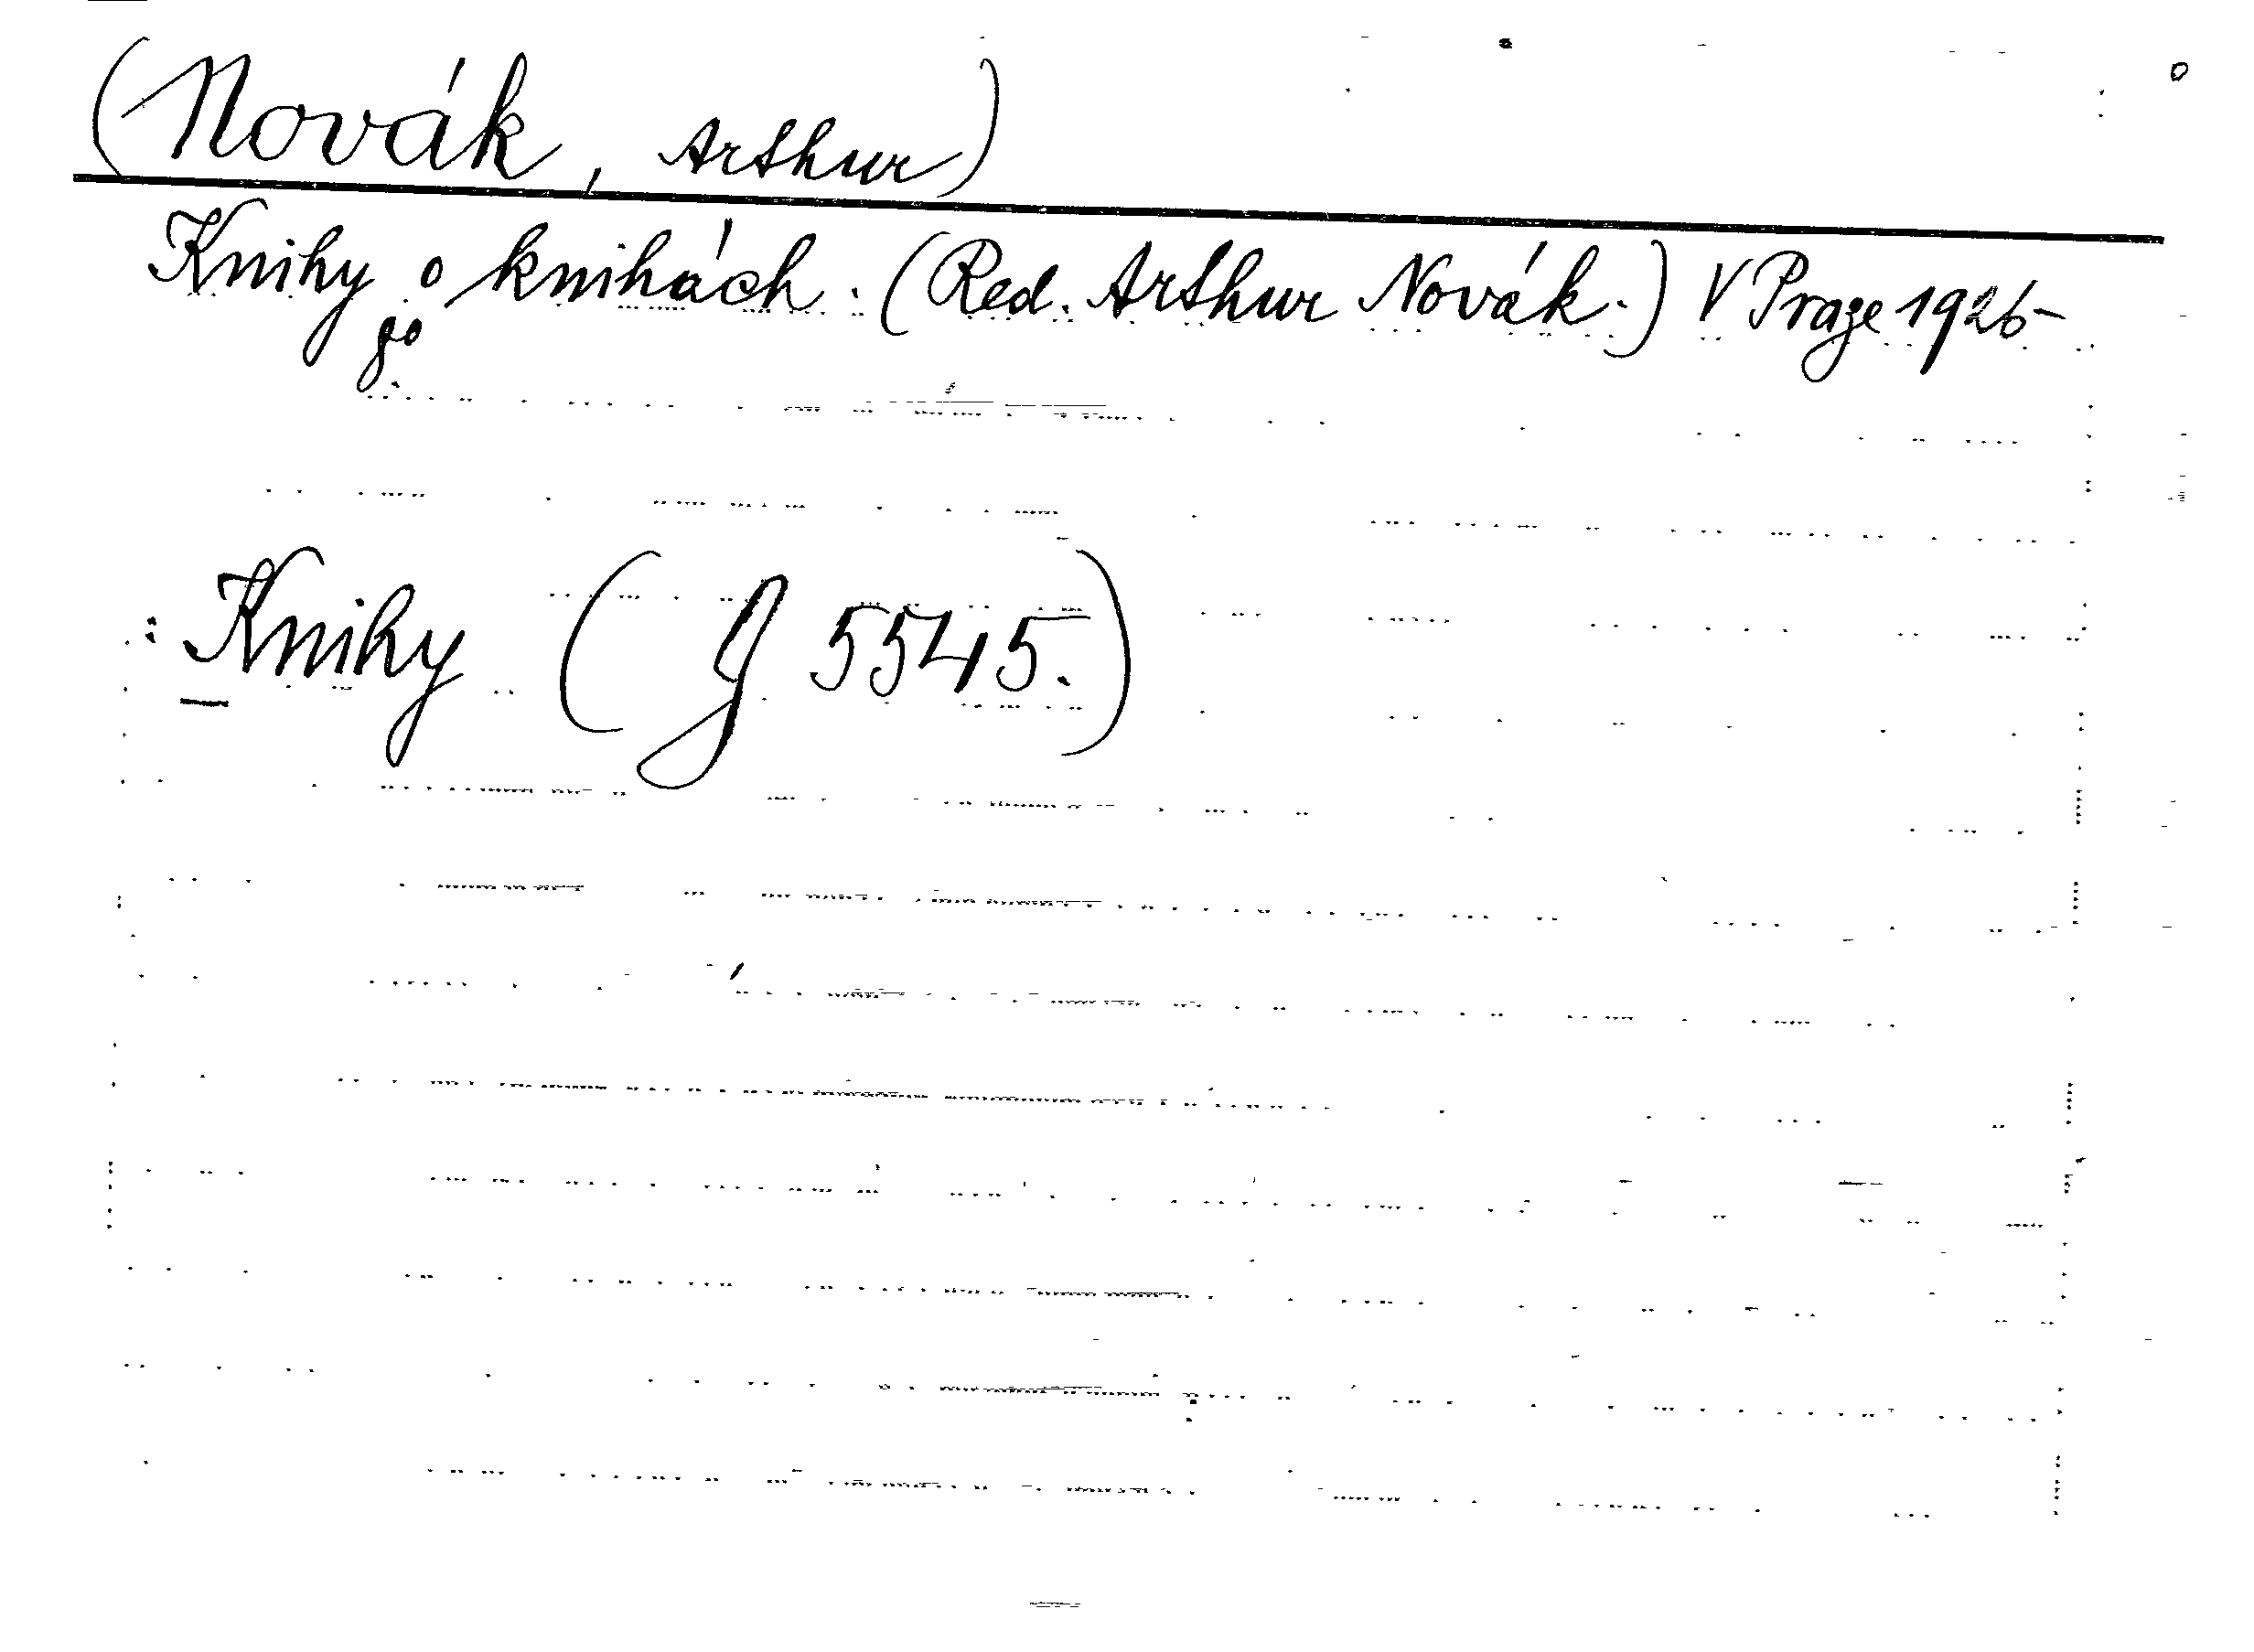 (Novák, Arthur)
Knihy o knihách. (Red. Arthur Novák.) V Praze 1926-
8o
: Knihy (J 5545.)